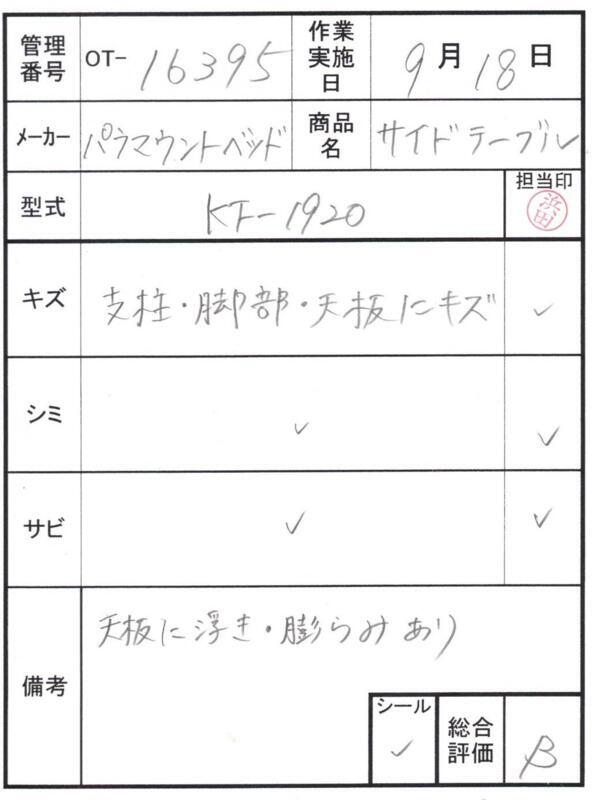 管理番号 OT- 16395 作業実施日 9月18日
メーカー パラマウントベッド 商品名 サイドテーブル
型式 KF-1920 担当印 浜田
キズ 支柱・脚部・天板にキズ ✓
シミ ✓ ✓
サビ ✓ ✓
備考 天板に浮き・膨らみあり
シール ✓ 総合評価 β